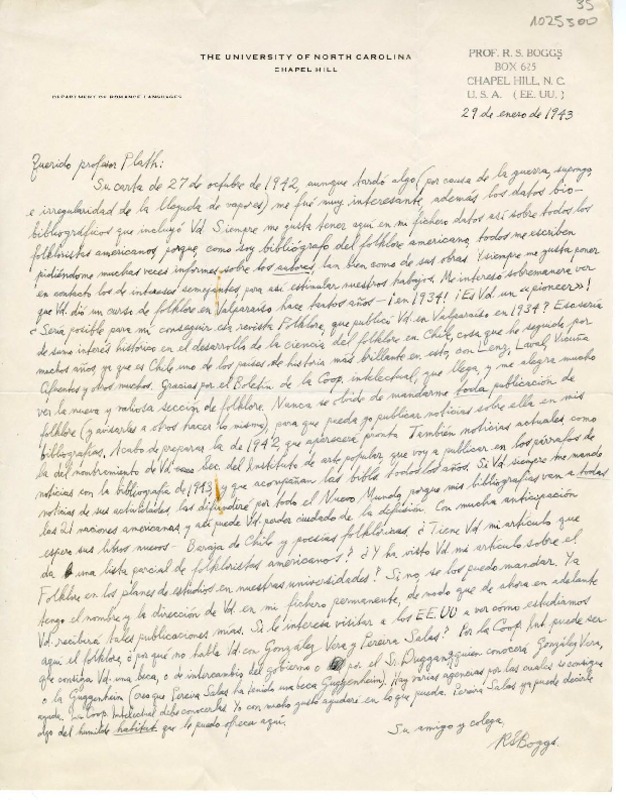 35
1025300
THE UNIVERSITY OF NORTH CAROLINA
CHAPEL HILL
DEPARTMENT OF ROMANCE LANGUAGES
PROF. R. S. BOGGS
BOX 625
CHAPEL HILL, N. C.
U. S. A. (EE. UU.)
29 de enero de 1943
Querido profesor Plath:
Su carta de 27 de octubre de 1942, aunque tardó algo (por causa de la guerra, supongo,
e irregularidad de la llegada de vapores) me fué muy interesante, además los datos bio-
bibliográficos que incluyó Vd. Siempre me gusta tener aquí en mi fichero datos así sobre todos los
folkloristas americanos, porque, como soy bibliógrafo del folklore americano, todos me escriben
pidiéndome muchas veces informes sobre los autores, tan bien como de sus obras. Y siempre me gusta poner
en contacto los de intereses semejantes para así estimular nuestros trabajos. Me interesó sobremanera ver
que Vd. dió un curso de folklore en Valparaíso hace tantos años — ¡en 1934! ¡Es Vd. un «pioneer»!
¿Sería posible para mí conseguir esa revista Folklore, que publicó Vd. en Valparaíso en 1934? Ese sería
de sumo interés histórico en el desarrollo de la ciencia del folklore en Chile, cosa que he seguido por
muchos años, ya que es Chile uno de los países de historia más brillante en esto, con Lenz, Laval, Vicuña
Cifuentes y otros muchos. Gracias por el Boletín de la Coop. intelectual, que llega, y me alegra mucho
ver la nueva y valiosa sección de folklore. Nunca se olvide de mandarme toda publicación de
folklore (y avisarles a otros hacer lo mismo) para que pueda yo publicar noticias sobre ella en mis
bibliografías. Acabo de preparar la de 1942, que aparecerá pronto. También noticias actuales como
la del nombramiento de Vd. Sec. del Instituto de arte popular que voy a publicar en los párrafos de
noticias con la bibliografía de 1943, y que acompañan las bibls. todos los años. Si Vd. siempre me manda
noticias de sus actividades las difundiré por todo el Nuevo Mundo, porque mis bibliografías van a todas
las 21 naciones americanas, y así puede Vd. perder cuidado de la difusión. Con mucha anticipación
espero sus libros nuevos — Baraja de Chile y poesías folklóricas. ¿Tiene Vd. mi artículo que
da una lista parcial de folkloristas americanos? ¿Y ha visto Vd. mi artículo sobre el
Folklore en los planes de estudios en nuestras universidades? Si no, se los puedo mandar. Ya
tengo el nombre y la dirección de Vd. en mi fichero permanente, de modo que de ahora en adelante
Vd. recibirá tales publicaciones mías. Si le interesa visitar a los EE.UU a ver como estudiamos
aquí el folklore, ¿por qué no habla Vd. con González Vera y Pereira Salas? Por la Coop. Int. puede ser
que consiga Vd. una beca, o de intercambio del gobierno o por el Sr. Duggan, quien conocerá González Vera,
o la Guggenheim (creo que Pereira Salas ha tenido una beca Guggenheim). Hay varias agencias por las cuales se consigue
ayuda. La Coop. Intelectual debe conocerlas. Yo con mucho gusto ayudaré en lo que pueda. Pereira Salas ya puede decirle
algo del humilde habitat que le puedo ofrecer aquí.
Su amigo y colega,
R S Boggs.